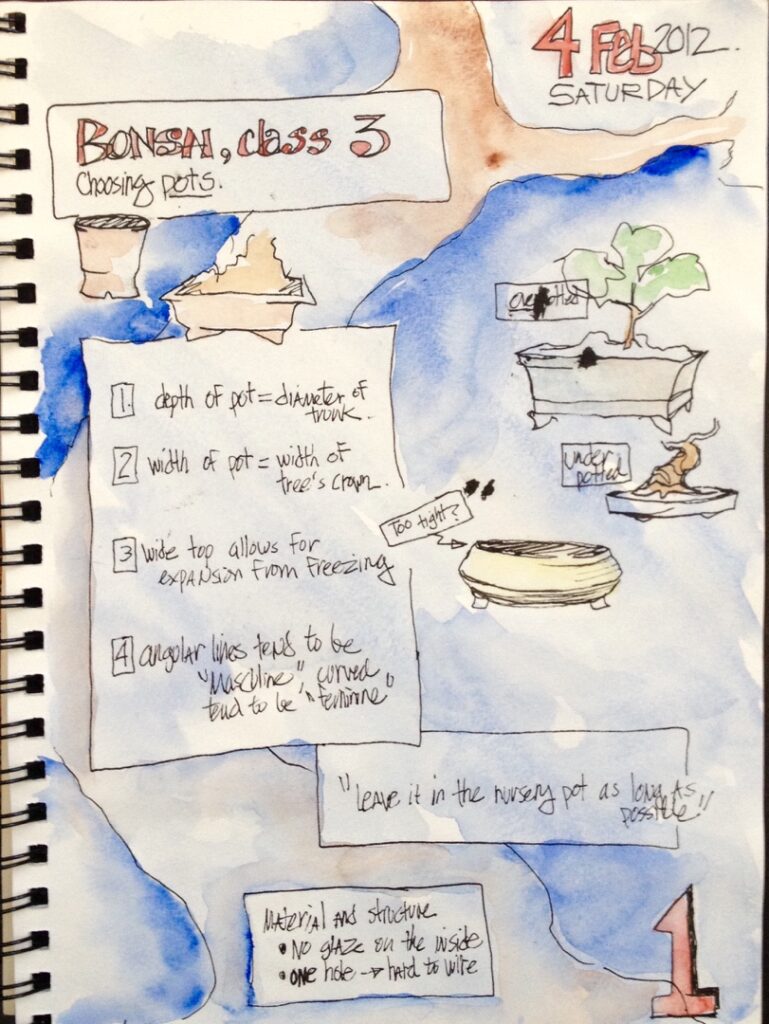 4 Feb 2012.
SATURDAY
BONSAI, class 3
Choosing pots.
overpotted
1. depth of pot = diameter of
trunk.
under
potted
2 width of pot = width of
tree's crown.
Too tight?
3 wide top allows for
expansion from freezing
4 angular lines tend to be
"masculine", curved
tend to be "feminine"
"Leave it in the nursery pot as long as
possible"
Material and structure
• No glaze on the inside
• one hole → hard to wire
1